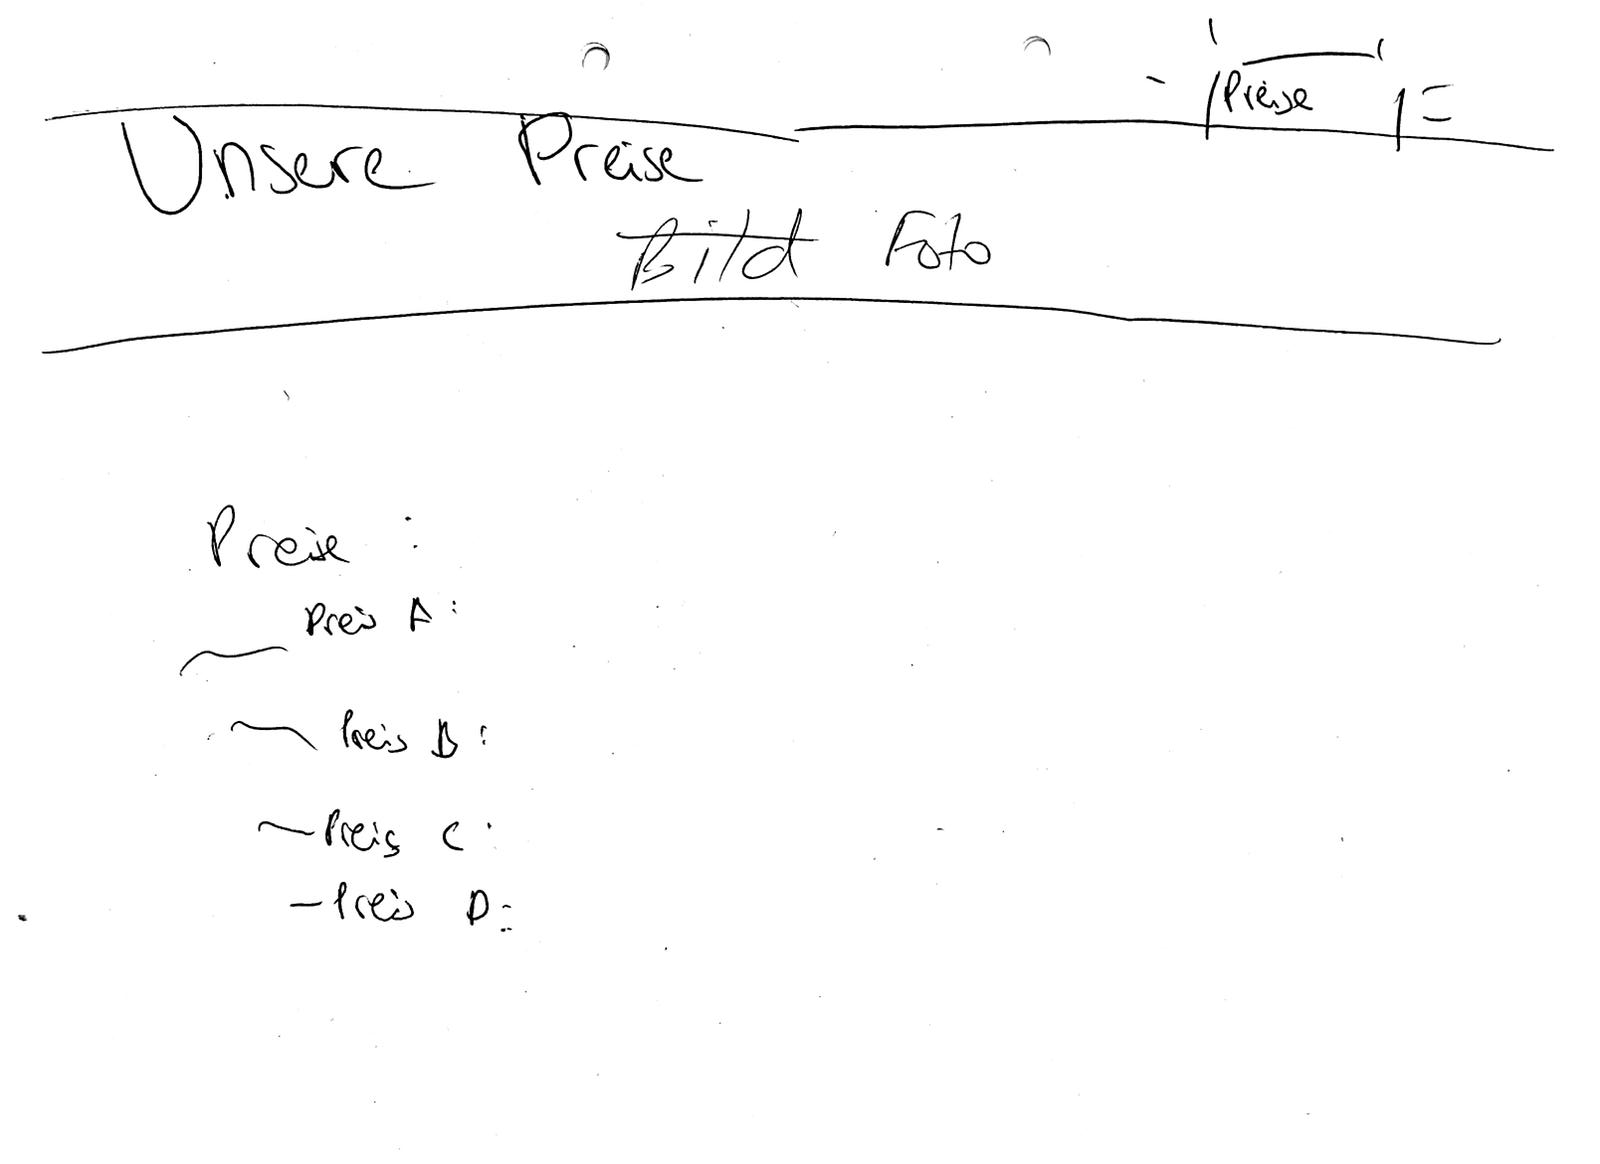 Preise
Unsere Preise
Bild Foto
Preise :
Preis A:
Preis B:
- Preis C:
- Preis D: